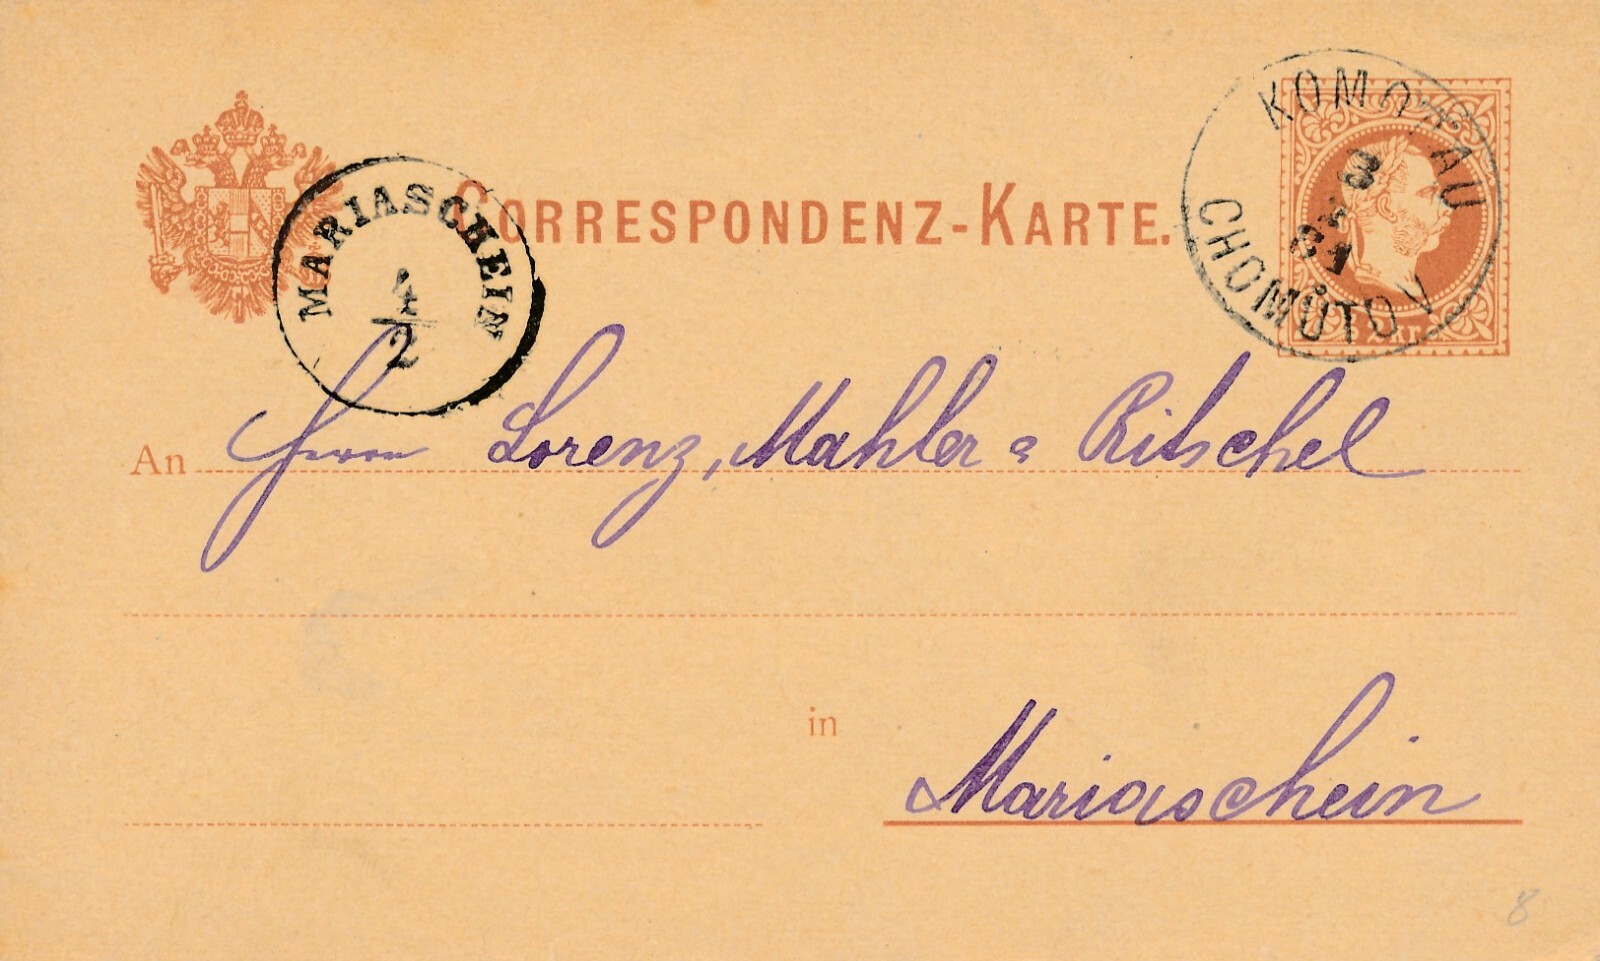 CORRESPONDENZ-KARTE.
MARIASCHEIN
4/2
KOMOTAU
3
81
CHOMŮTOV
2 Kr.
An Herren Lorenz, Mahler & Ritschel
in Mariaschein
8